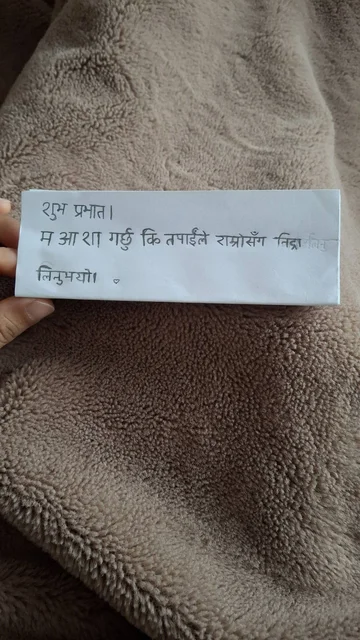 शुभ प्रभात।
म आशा गर्छु कि तपाईंले राम्रोसँग निद्रा
लिनुभयो।